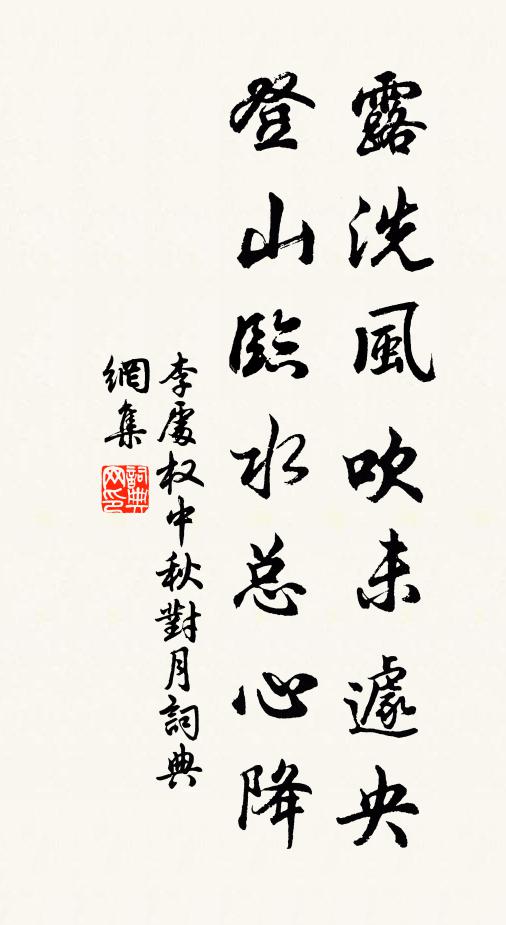 露洗風吹未遽央
登山臨水总心降
李處权中秋對月詞典
網集
詞典
网印